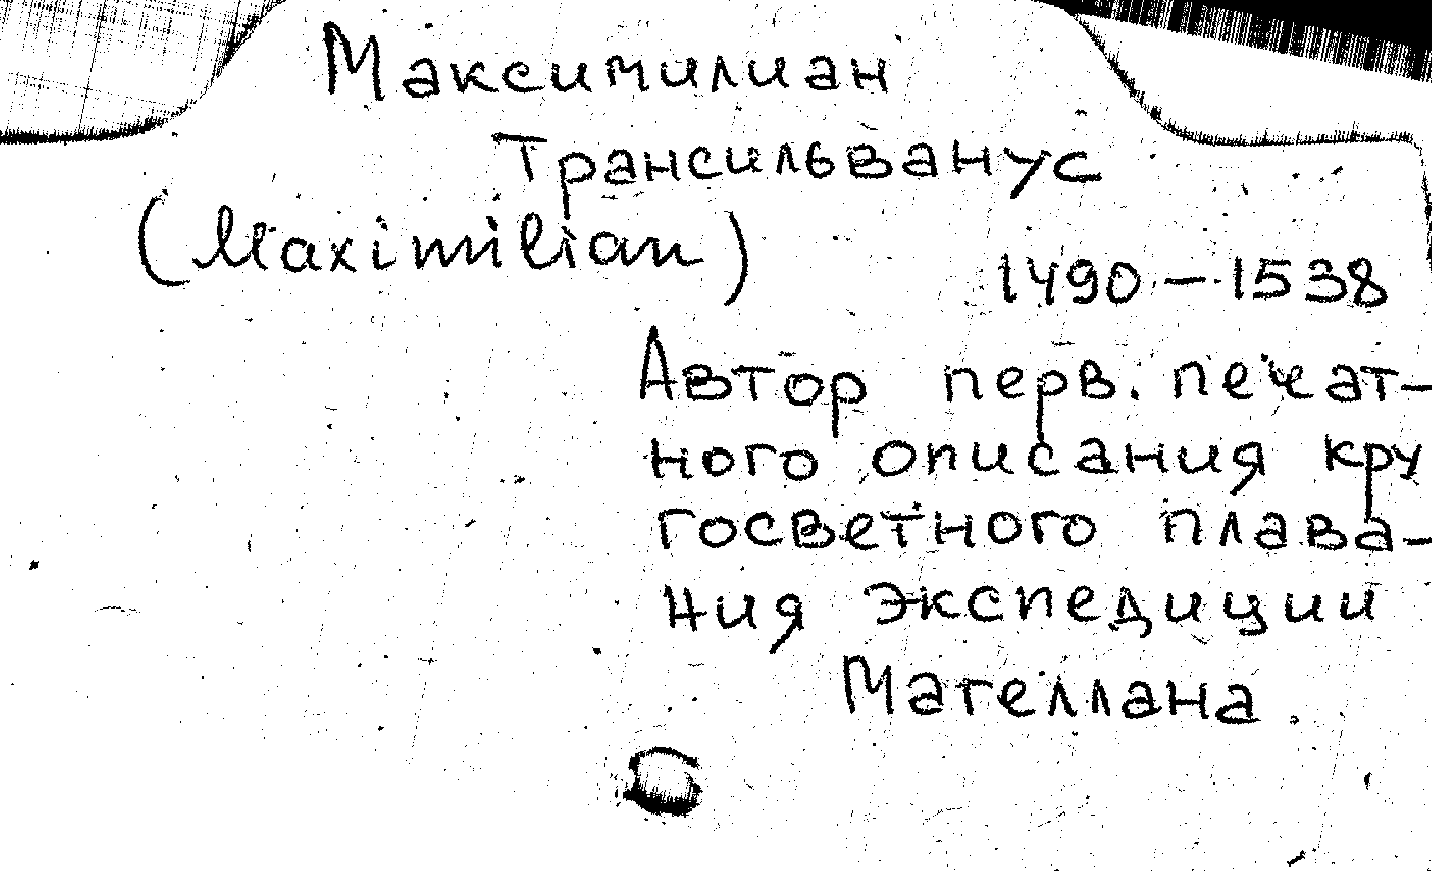 Максимилиан
Трансильванус
(Maximilian)
1490 – 1538
Автор перв. печат-
ного описания кру
госветного плава-
ния экспедиции
Магеллана.